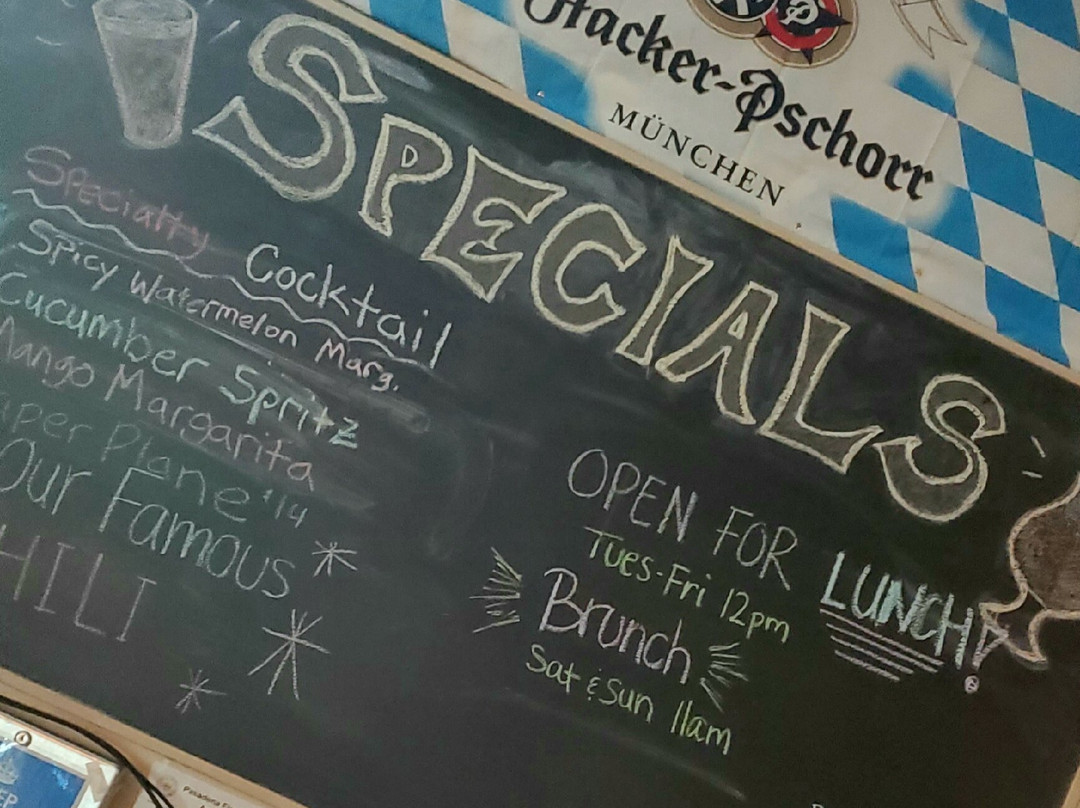 Hacker-Pschorr
MÜNCHEN
SPECIALS
Specialty Cocktail
Spicy Watermelon Marg.
Cucumber Spritz
Mango Margarita
Plane '14
Our Famous
HILI
OPEN FOR LUNCH!
Tues-Fri 12pm
Brunch
Sat & Sun 11am